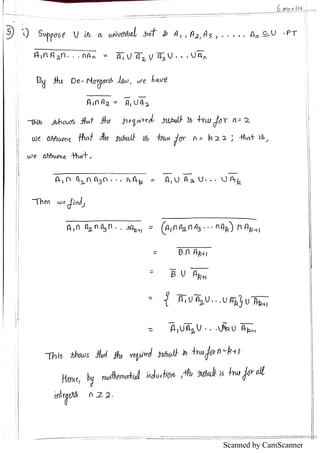 6 marks
5) i) Suppose U is a universal set & A₁, A₂, A₃, ..... Aₙ ⊆ U . PT
A̅₁̅∩̅A̅₂̅∩̅.̅.̅.̅∩̅A̅ₙ̅ = A̅₁ ∪ A̅₂ ∪ A̅₃ ∪ ... ∪ A̅ₙ
By the De-Morgan's law, we have
A̅₁̅∩̅A̅₂̅ = A̅₁ ∪ A̅₂
This shows that the required result is true for n=2
we assume that the result is true for n=k≥2; that is,
we assume that,
A̅₁̅∩̅A̅₂̅∩̅A̅₃̅∩̅.̅.̅.̅∩̅A̅ₖ̅ = A̅₁ ∪ A̅₂ ∪ ... ∪ A̅ₖ
Then we find,
A̅₁̅∩̅A̅₂̅∩̅A̅₃̅∩̅.̅.̅A̅ₖ̅₊̅₁̅ = (A₁∩A₂∩A₃...∩Aₖ)∩Aₖ₊₁
= B̅∩̅A̅ₖ̅₊̅₁̅
= B̅ ∪ A̅ₖ₊₁
= { A̅₁ ∪ A̅₂ ∪ .. ∪ A̅ₖ} ∪ A̅ₖ₊₁
= A̅₁ ∪ A̅₂ ∪ ... A̅ₖ ∪ A̅ₖ₊₁
This shows that the required result is true for n=k+1.
Hence, by mathematical induction, the result is true for all
integers n≥2.
Scanned by CamScanner